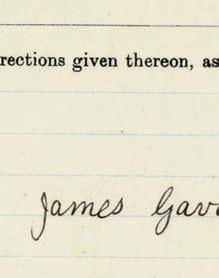 rections given thereon, as
James Gav